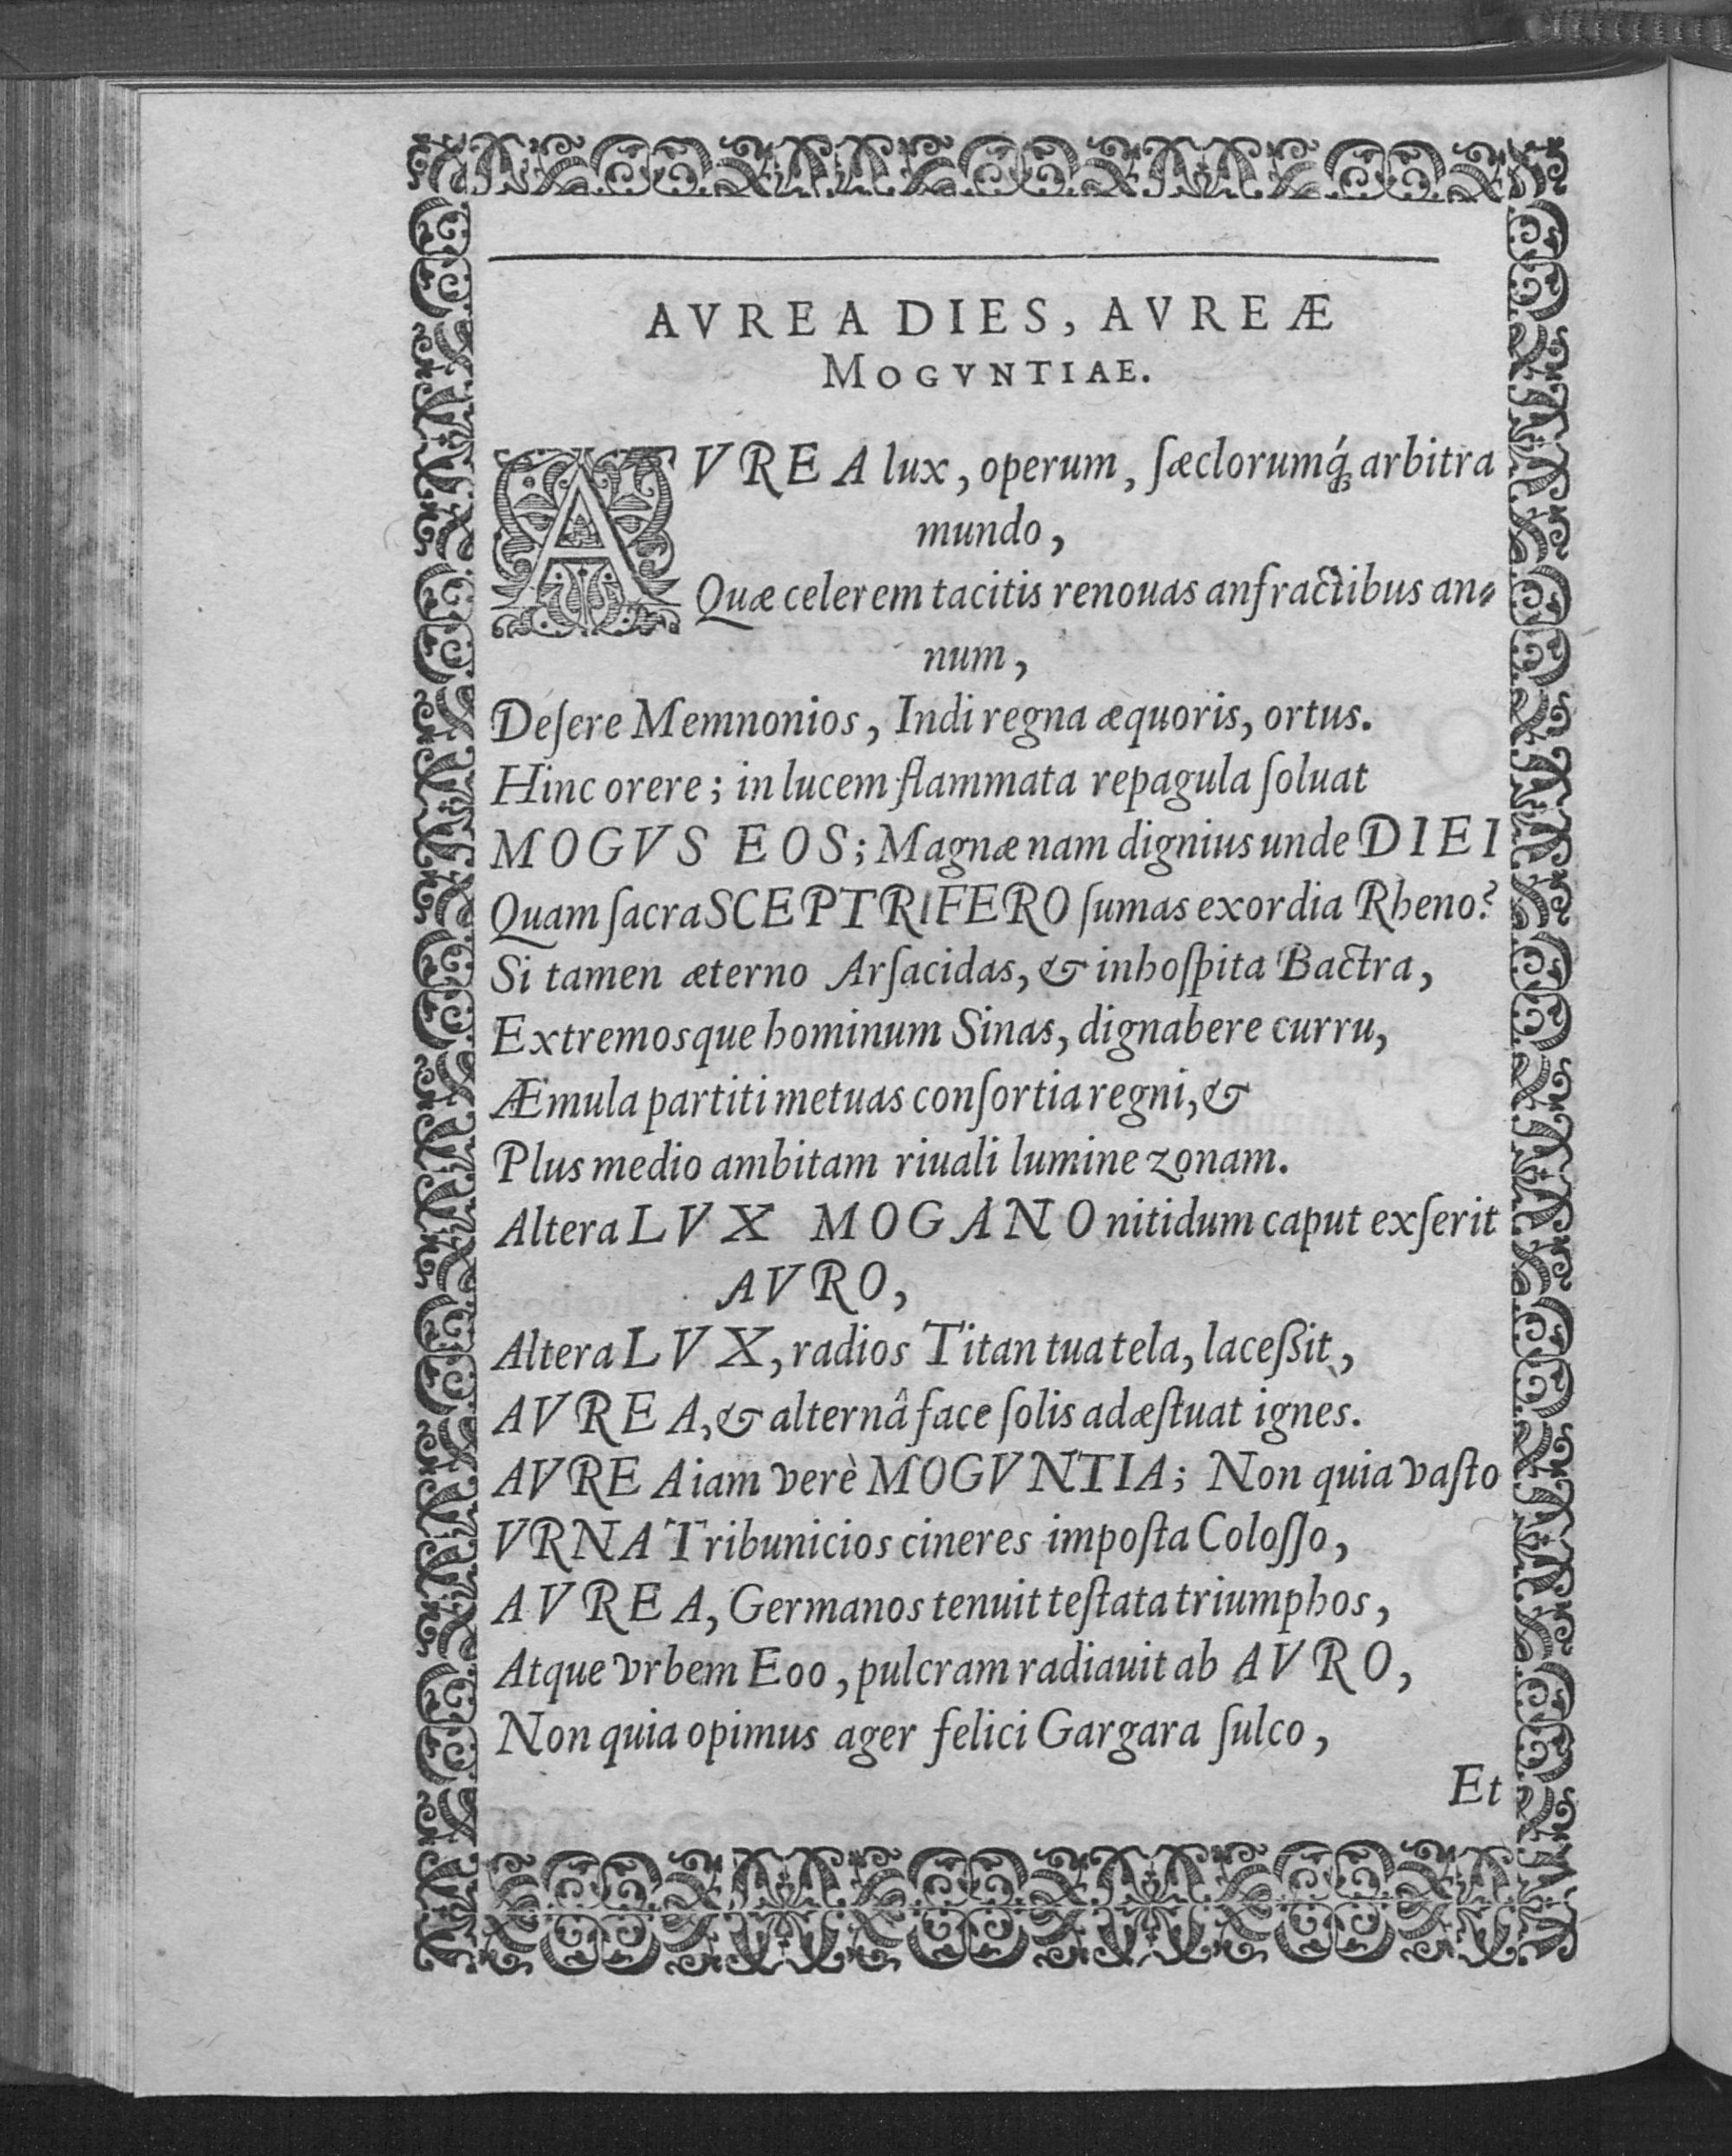 AVREA DIES, AVREÆ
MOGVNTIAE.
AVREA lux, operum, ſæclorumq́ꝫ arbitra
mundo,
Quæ celerem tacitis renouas anfractibus an⸗
num,
Deſere Memnonios, Indi regna æquoris, ortus.
Hinc orere; in lucem flammata repagula ſoluat
MOGVS EOS; Magnæ nam dignius unde DIEI
Quam ſacra SCEPTRIFERO ſumas exordia Rheno?
Si tamen æterno Arſacidas, & inhoſpita Bactra,
Extremosque hominum Sinas, dignabere curru,
Æmula partiti metuas conſortia regni, &
Plus medio ambitam riuali lumine zonam.
Altera LVX MOGANO nitidum caput exſerit
AVRO,
Altera LVX, radios Titan tua tela, laceßit,
AVREA, & alternâ face ſolis adæſtuat ignes.
AVREA iam verè MOGVNTIA; Non quia vaſto
VRNA Tribunicios cineres impoſta Coloſſo,
AVREA, Germanos tenuit teſtata triumphos,
Atque vrbem Eoo, pulcram radiauit ab AVRO,
Non quia opimus ager felici Gargara ſulco,
Et